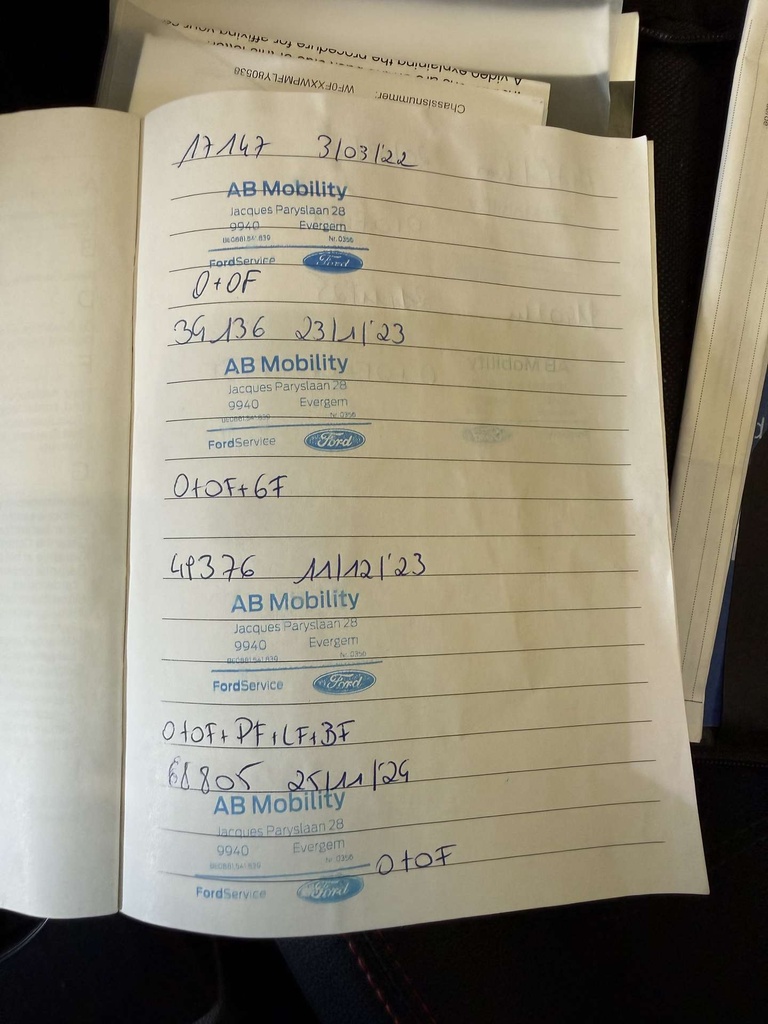 A video explaining the procedure for affixing your
Chassisnummer: WF0FXXWPMFLY80538
17147 3/03/'22
AB Mobility
Jacques Paryslaan 28
9940 Evergem
Nr. 0356
FordService Ford
O+OF
34136 23/1/'23
AB Mobility
Jacques Paryslaan 28
9940 Evergem
Nr. 0356
FordService Ford
O+OF+GF
49376 11/12/'23
AB Mobility
Jacques Paryslaan 28
9940 Evergem
Nr. 0356
FordService Ford
O+OF+PF+LF+BF
68805 25/11/'24
AB Mobility
Jacques Paryslaan 28
9940 Evergem
Nr. 0356
O+OF
FordService Ford